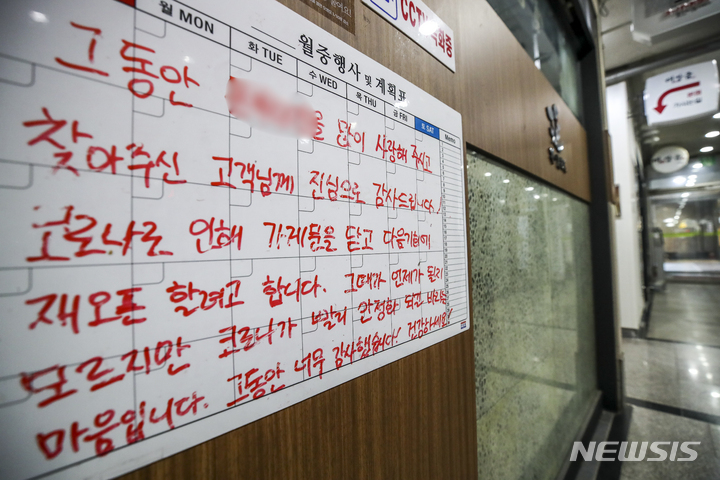 CCTV 녹화중
월중행사 및 계획표
월 MON 화 TUE 수 WED 목 THU 금 FRI 토 SAT Memo
그동안 을 많이 사랑해 주시고
찾아주신 고객님께 진심으로 감사드립니다!
코로나로 인해 가게문을 닫고 다음기회에
재오픈 할려고 합니다. 그때가 언제가 될런지
모르지만 코로나가 빨리 안정화 되길 바라는
마음입니다. 그동안 너무 감사했습니다! 건강하세요!
NEWSIS